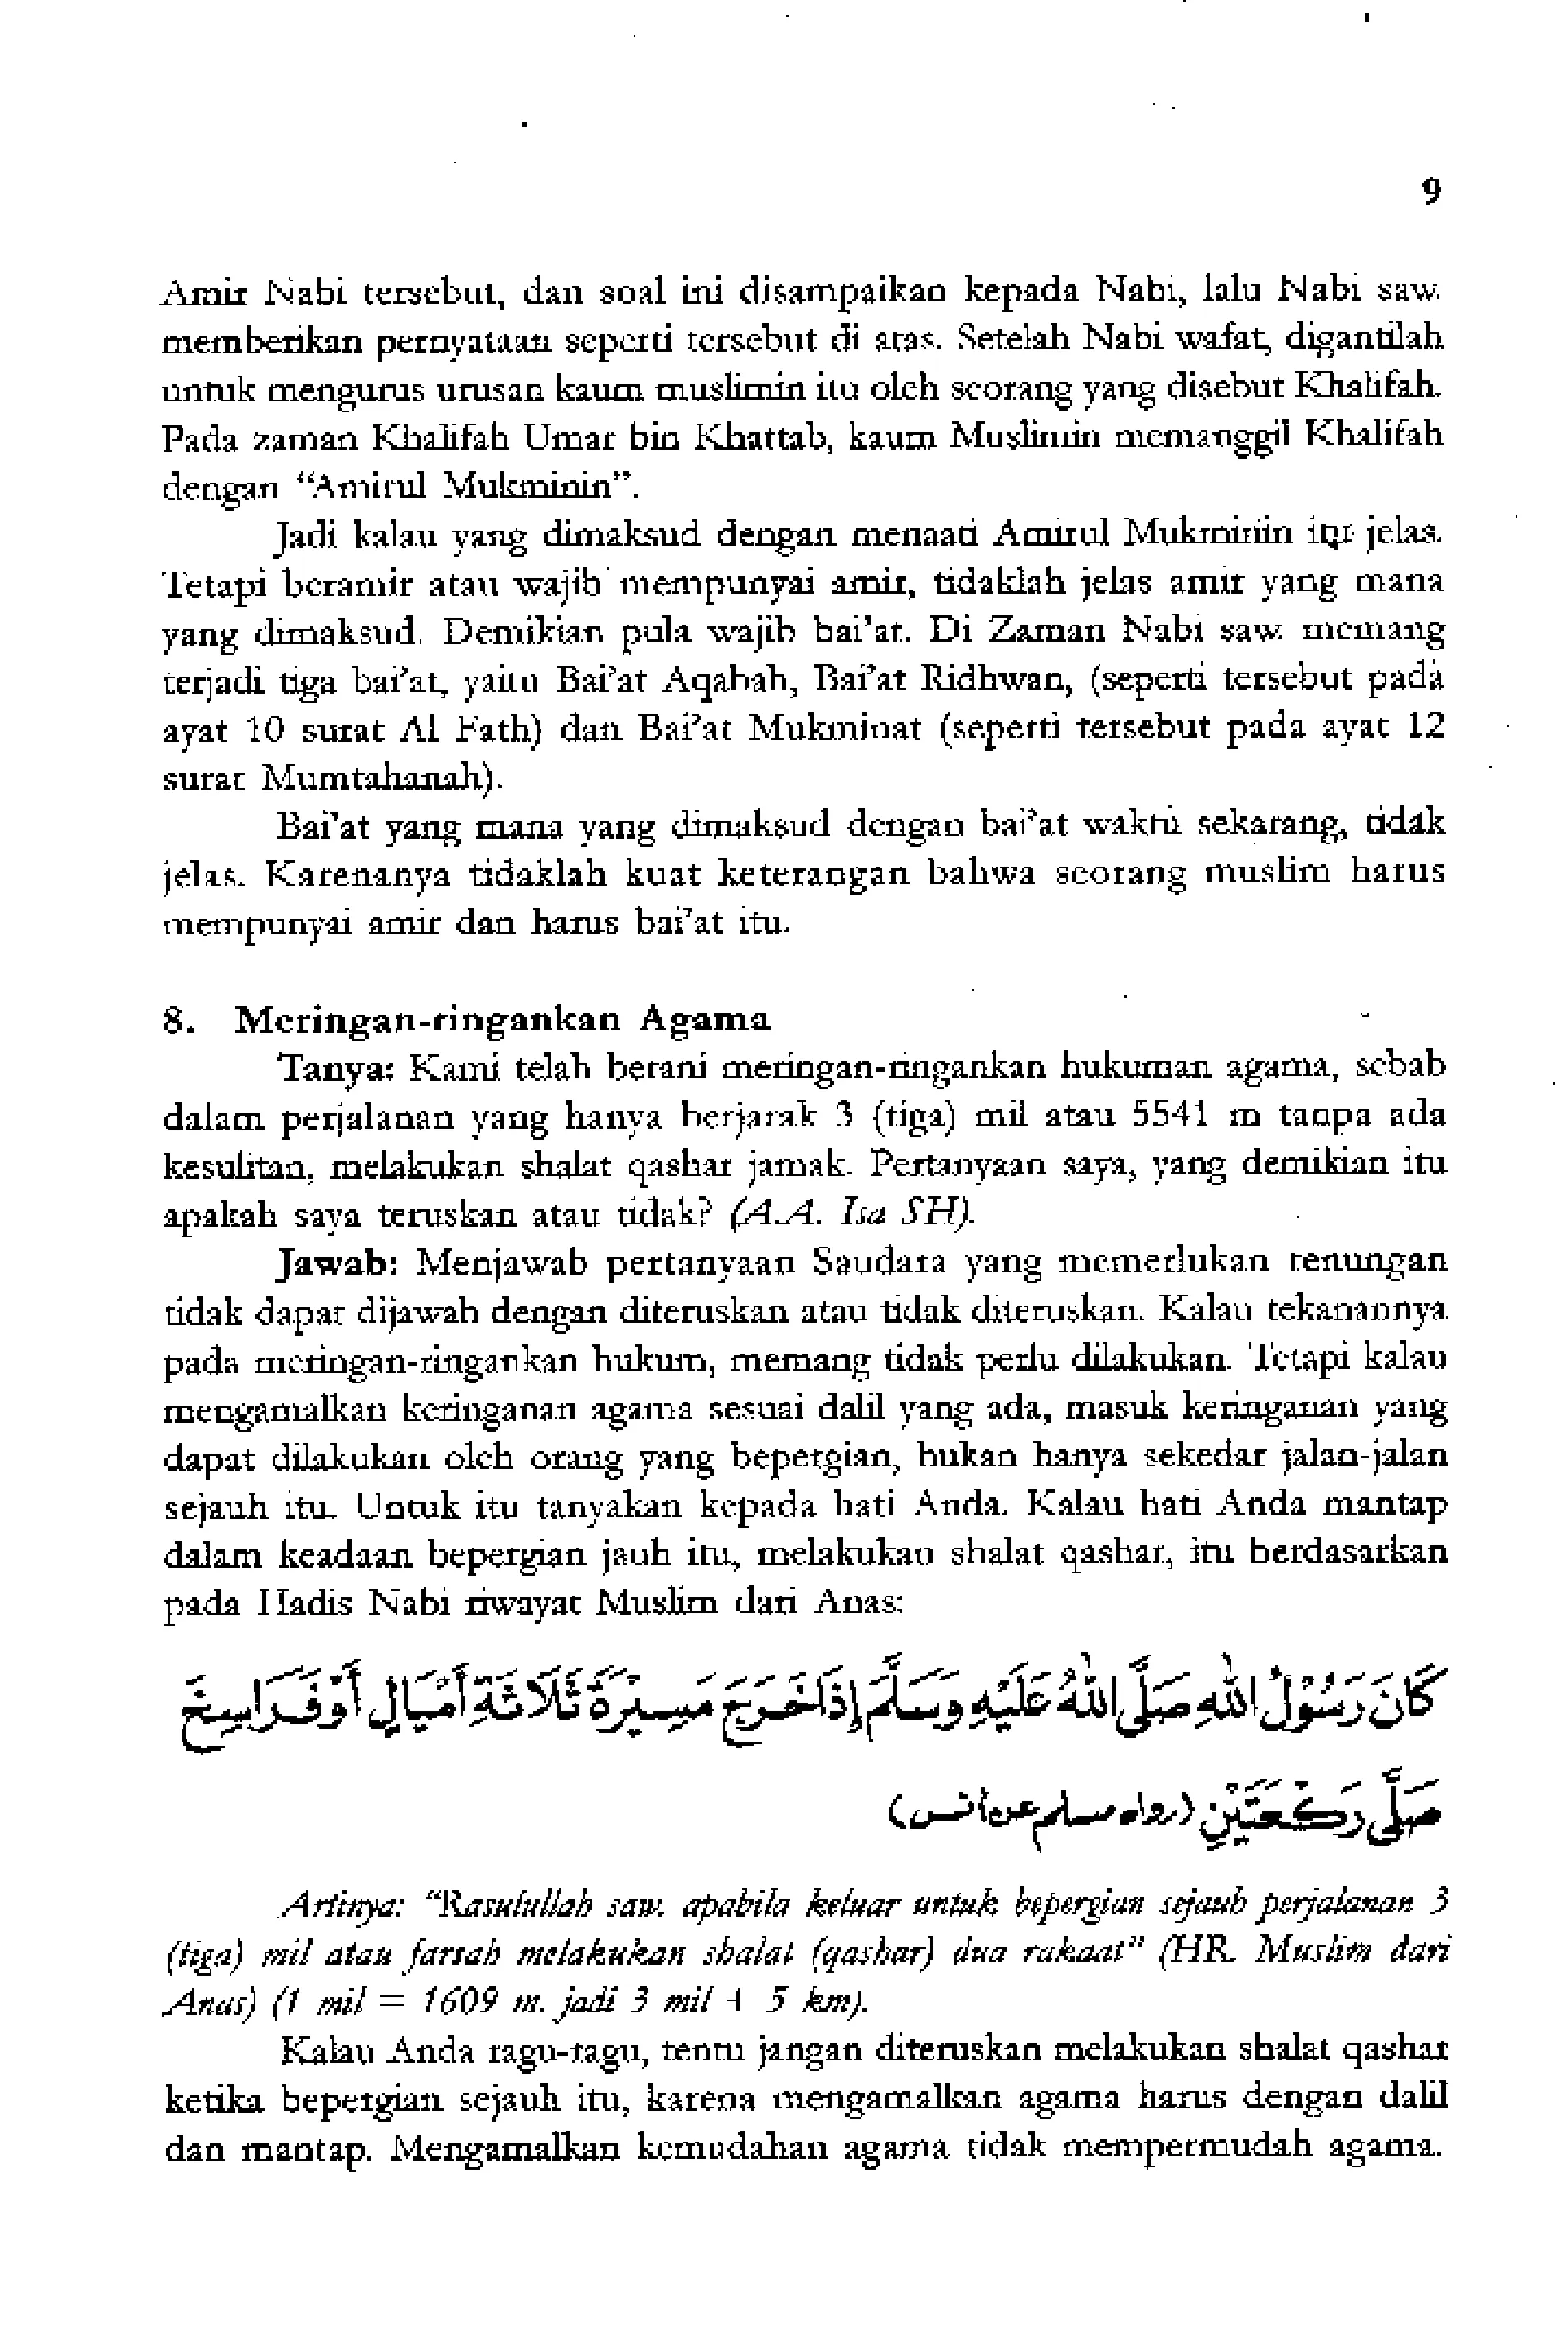 9
Amir Nabi tersebut, dan soal ini disampaikan kepada Nabi, lalu Nabi saw.
memberikan pernyataan seperti tersebut di atas. Setelah Nabi wafat, digantilah
untuk mengurus urusan kaum muslimin itu oleh seorang yang disebut Khalifah.
Pada zaman Khalifah Umar bin Khattab, kaum Muslimin memanggil Khalifah
dengan “Amirul Mukminin”.
Jadi kalau yang dimaksud dengan menaati Amirul Mukminin itu jelas.
Tetapi beramir atau wajib mempunyai amir, tidaklah jelas amir yang mana
yang dimaksud. Demikian pula wajib bai’at. Di Zaman Nabi saw. memang
terjadi tiga bai’at, yaitu Bai’at Aqabah, Bai’at Ridhwan, (seperti tersebut pada
ayat 10 surat Al Fath) dan Bai’at Mukminat (seperti tersebut pada ayat 12
surat Mumtahanah).
Bai’at yang mana yang dimaksud dengan bai’at waktu sekarang, tidak
jelas. Karenanya tidaklah kuat keterangan bahwa seorang muslim harus
mempunyai amir dan harus bai’at itu.
8. Meringan-ringankan Agama
Tanya: Kami telah berani meringan-ringankan hukuman agama, sebab
dalam perjalanan yang hanya berjarak 3 (tiga) mil atau 5541 m tanpa ada
kesulitan, melakukan shalat qashar jamak. Pertanyaan saya, yang demikian itu
apakah saya teruskan atau tidak? (A.A. Isa SH).
Jawab: Menjawab pertanyaan Saudara yang memerlukan renungan
tidak dapat dijawab dengan diteruskan atau tidak diteruskan. Kalau tekanannya
pada meringan-ringankan hukum, memang tidak perlu dilakukan. Tetapi kalau
mengamalkan keringanan agama sesuai dalil yang ada, masuk keringanan yang
dapat dilakukan oleh orang yang bepergian, bukan hanya sekedar jalan-jalan
sejauh itu. Untuk itu tanyakan kepada hati Anda. Kalau hati Anda mantap
dalam keadaan bepergian jauh itu, melakukan shalat qashar, itu berdasarkan
pada Hadis Nabi riwayat Muslim dari Anas:
كَانَ رَسُوْلُ اللهِ صَلَّى اللهُ عَلَيْهِ وَسَلَّمَ إِذَا خَرَجَ مَسِيْرَةَ ثَلَاثَةِ أَمْيَالٍ أَوْ فَرَاسِخَ
صَلَّى رَكْعَتَيْنِ (رواه مسلم عن أنس)
Artinya: “Rasulullah saw. apabila keluar untuk bepergian sejauh perjalanan 3
(tiga) mil atau farsah melakukan shalat (qashar) dua rakaat” (HR. Muslim dari
Anas) (1 mil = 1609 m. jadi 3 mil ± 5 km).
Kalau Anda ragu-ragu, tentu jangan diteruskan melakukan shalat qashar
ketika bepergian sejauh itu, karena mengamalkan agama harus dengan dalil
dan mantap. Mengamalkan kemudahan agama tidak mempermudah agama.